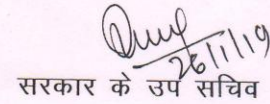 26/11/19
सरकार के उप सचिव